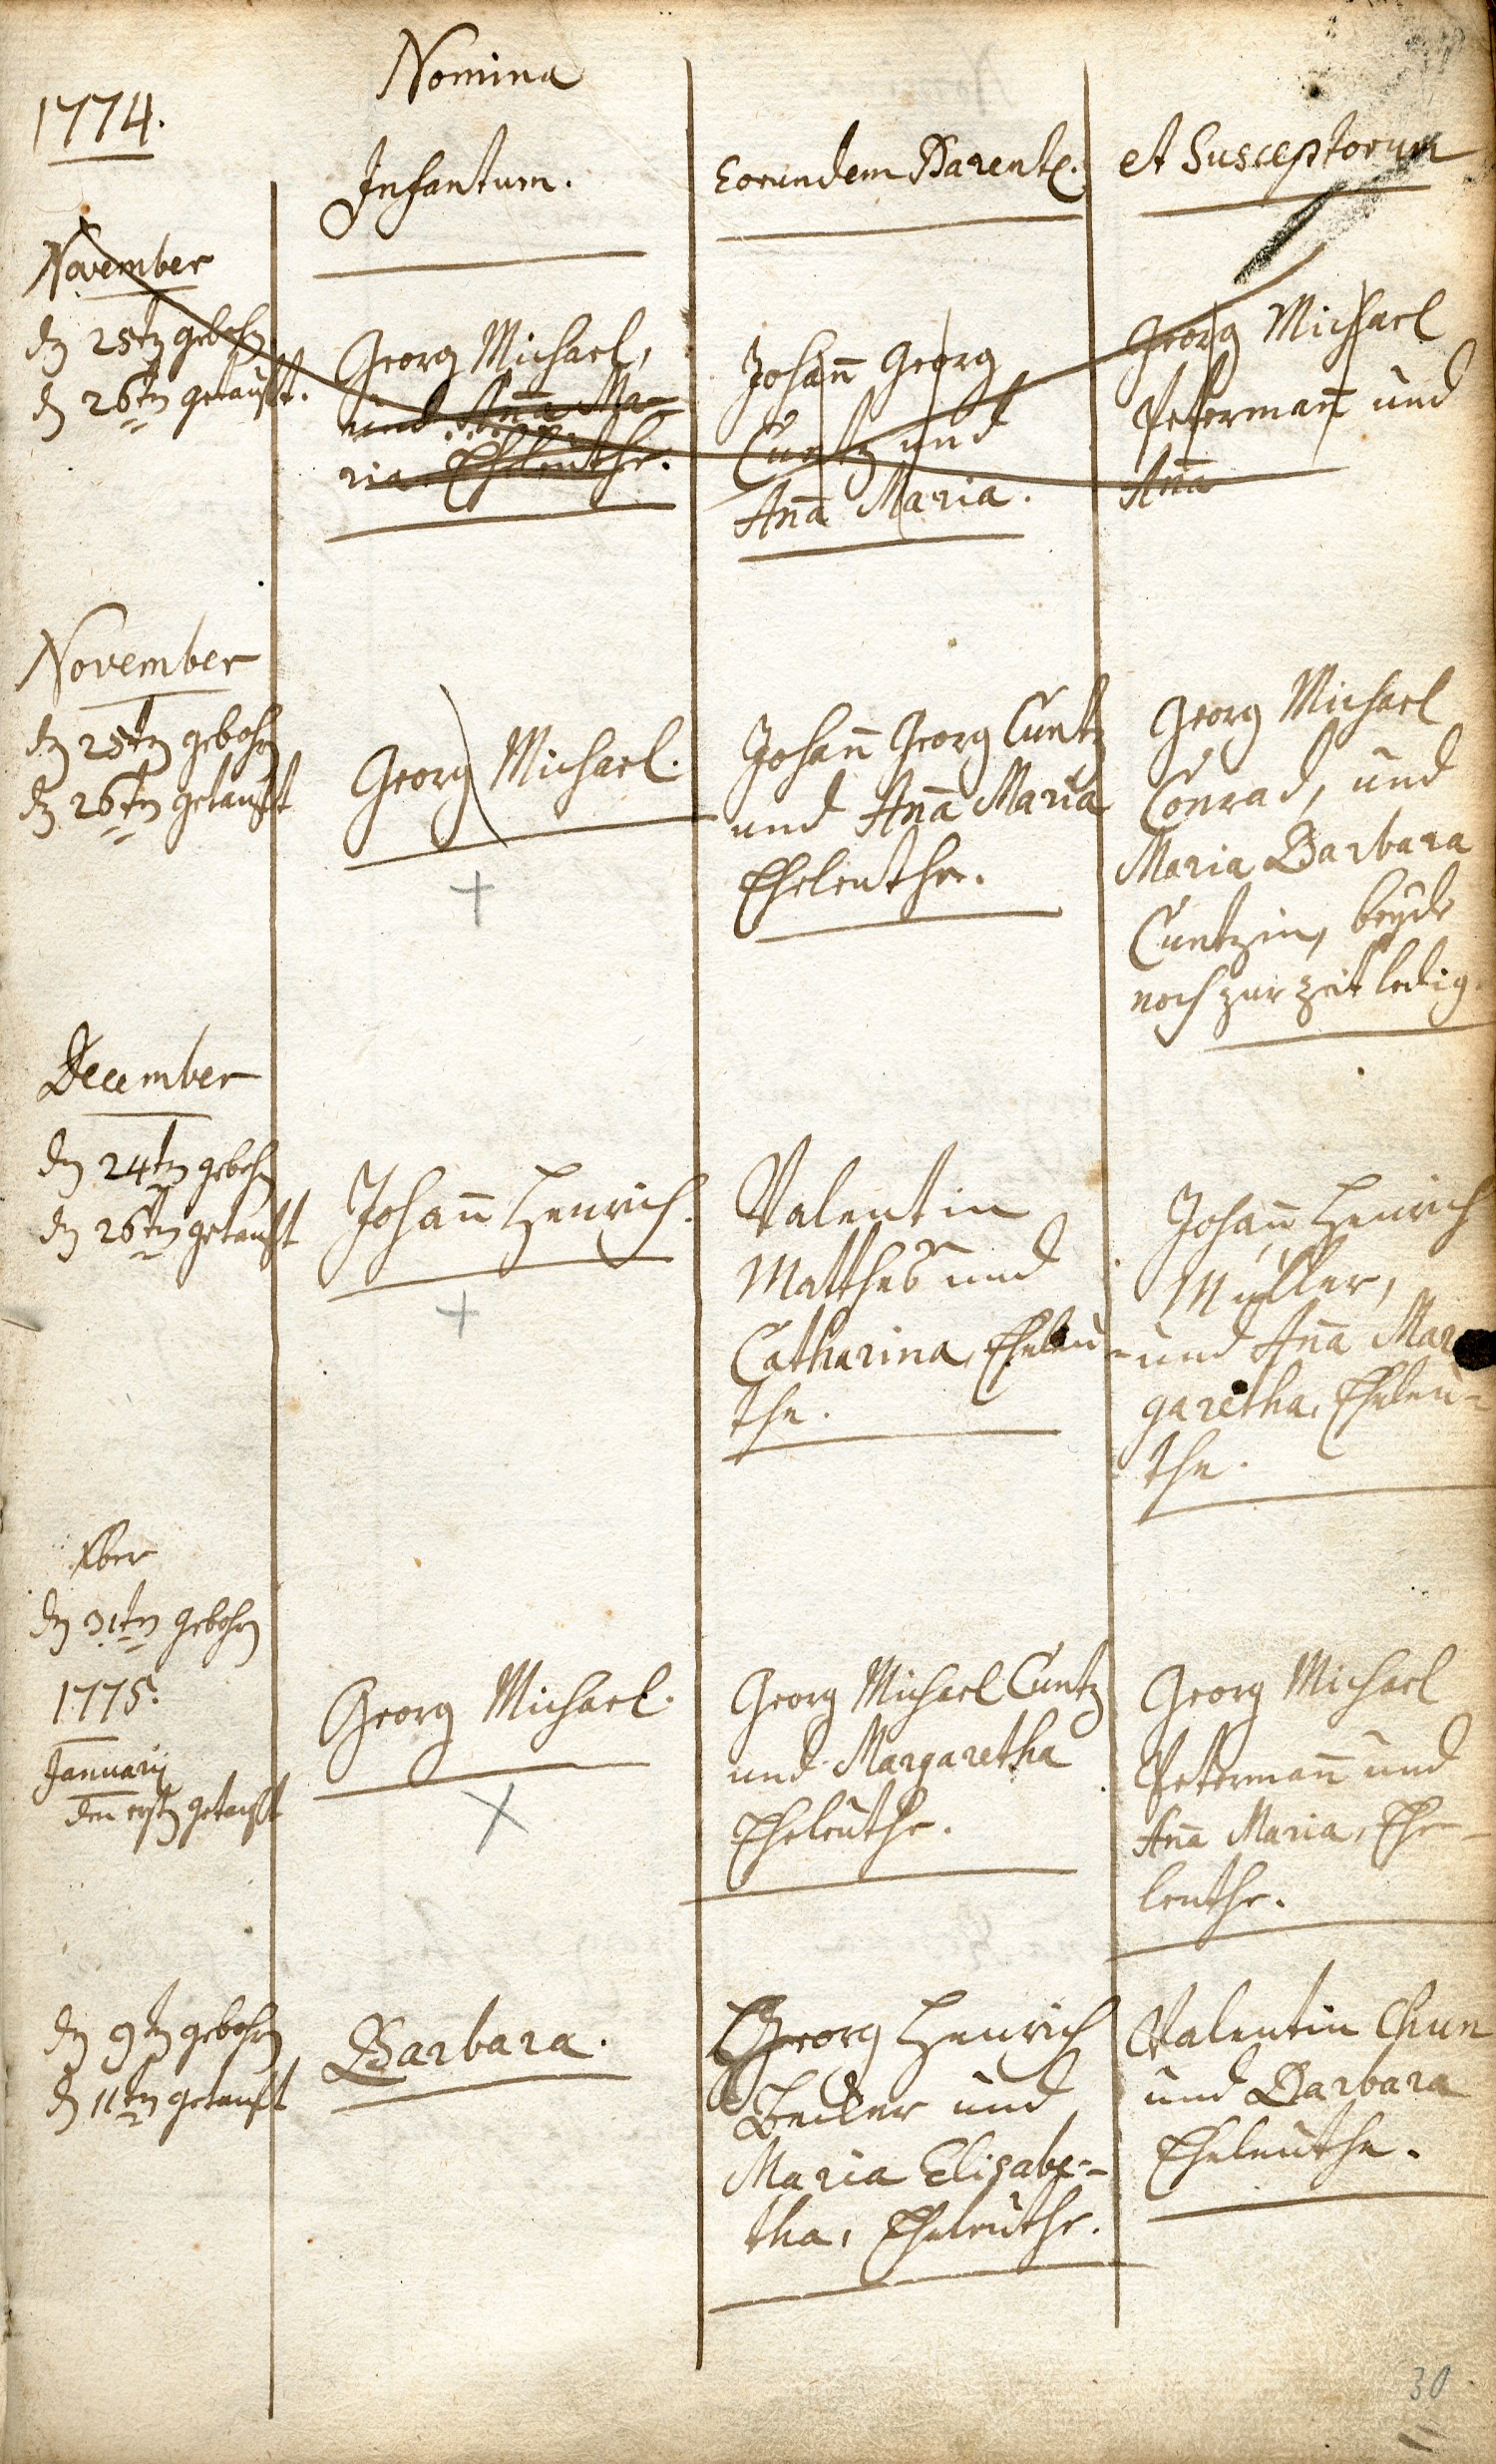 1774.
Nomina
Infantum.
Eorundem Parent.
et Susceptorum
November
dn 25tn gebohrn
dn 26tn getaufft.
Georg Michael,
und Anna Ma-
ria Eheleuthe.
Johan̄ Georg
Cuntz und
An̄a Maria.
Georg Michael
Peterman̄ und
An̄a
November
dn 25tn gebohrn
dn 26tn getaufft
Georg Michael.
Johan̄ Georg Cuntz
und An̄a Maria
Eheleuthe.
Georg Michael
Conrad, und
Maria Barbara
Cuntzin, beyde
noch zur zeit ledig.
December
dn 24tn gebohrn
dn 26tn getaufft
Johan̄ Henrich.
Valentin
Matthes und
Catharina, Eheleu-
the.
Johan̄ Henrich
Müller,
und An̄a Mar
garetha, Eheleu-
the.
Xber
dn 31tn gebohrn
1775.
Januarij
den erstn getaufft
Georg Michael.
Georg Michael Cuntz
und Margaretha
Eheleuthe.
Georg Michael
Peterman̄ und
An̄a Maria, Ehe-
leuthe.
dn 9tn gebohrn
dn 11tn getaufft
Barbara.
Georg Henrich
Becker und
Maria Elisabe-
tha, Eheleuthe.
Valentin Chun
und Barbara
Eheleuthe.
30